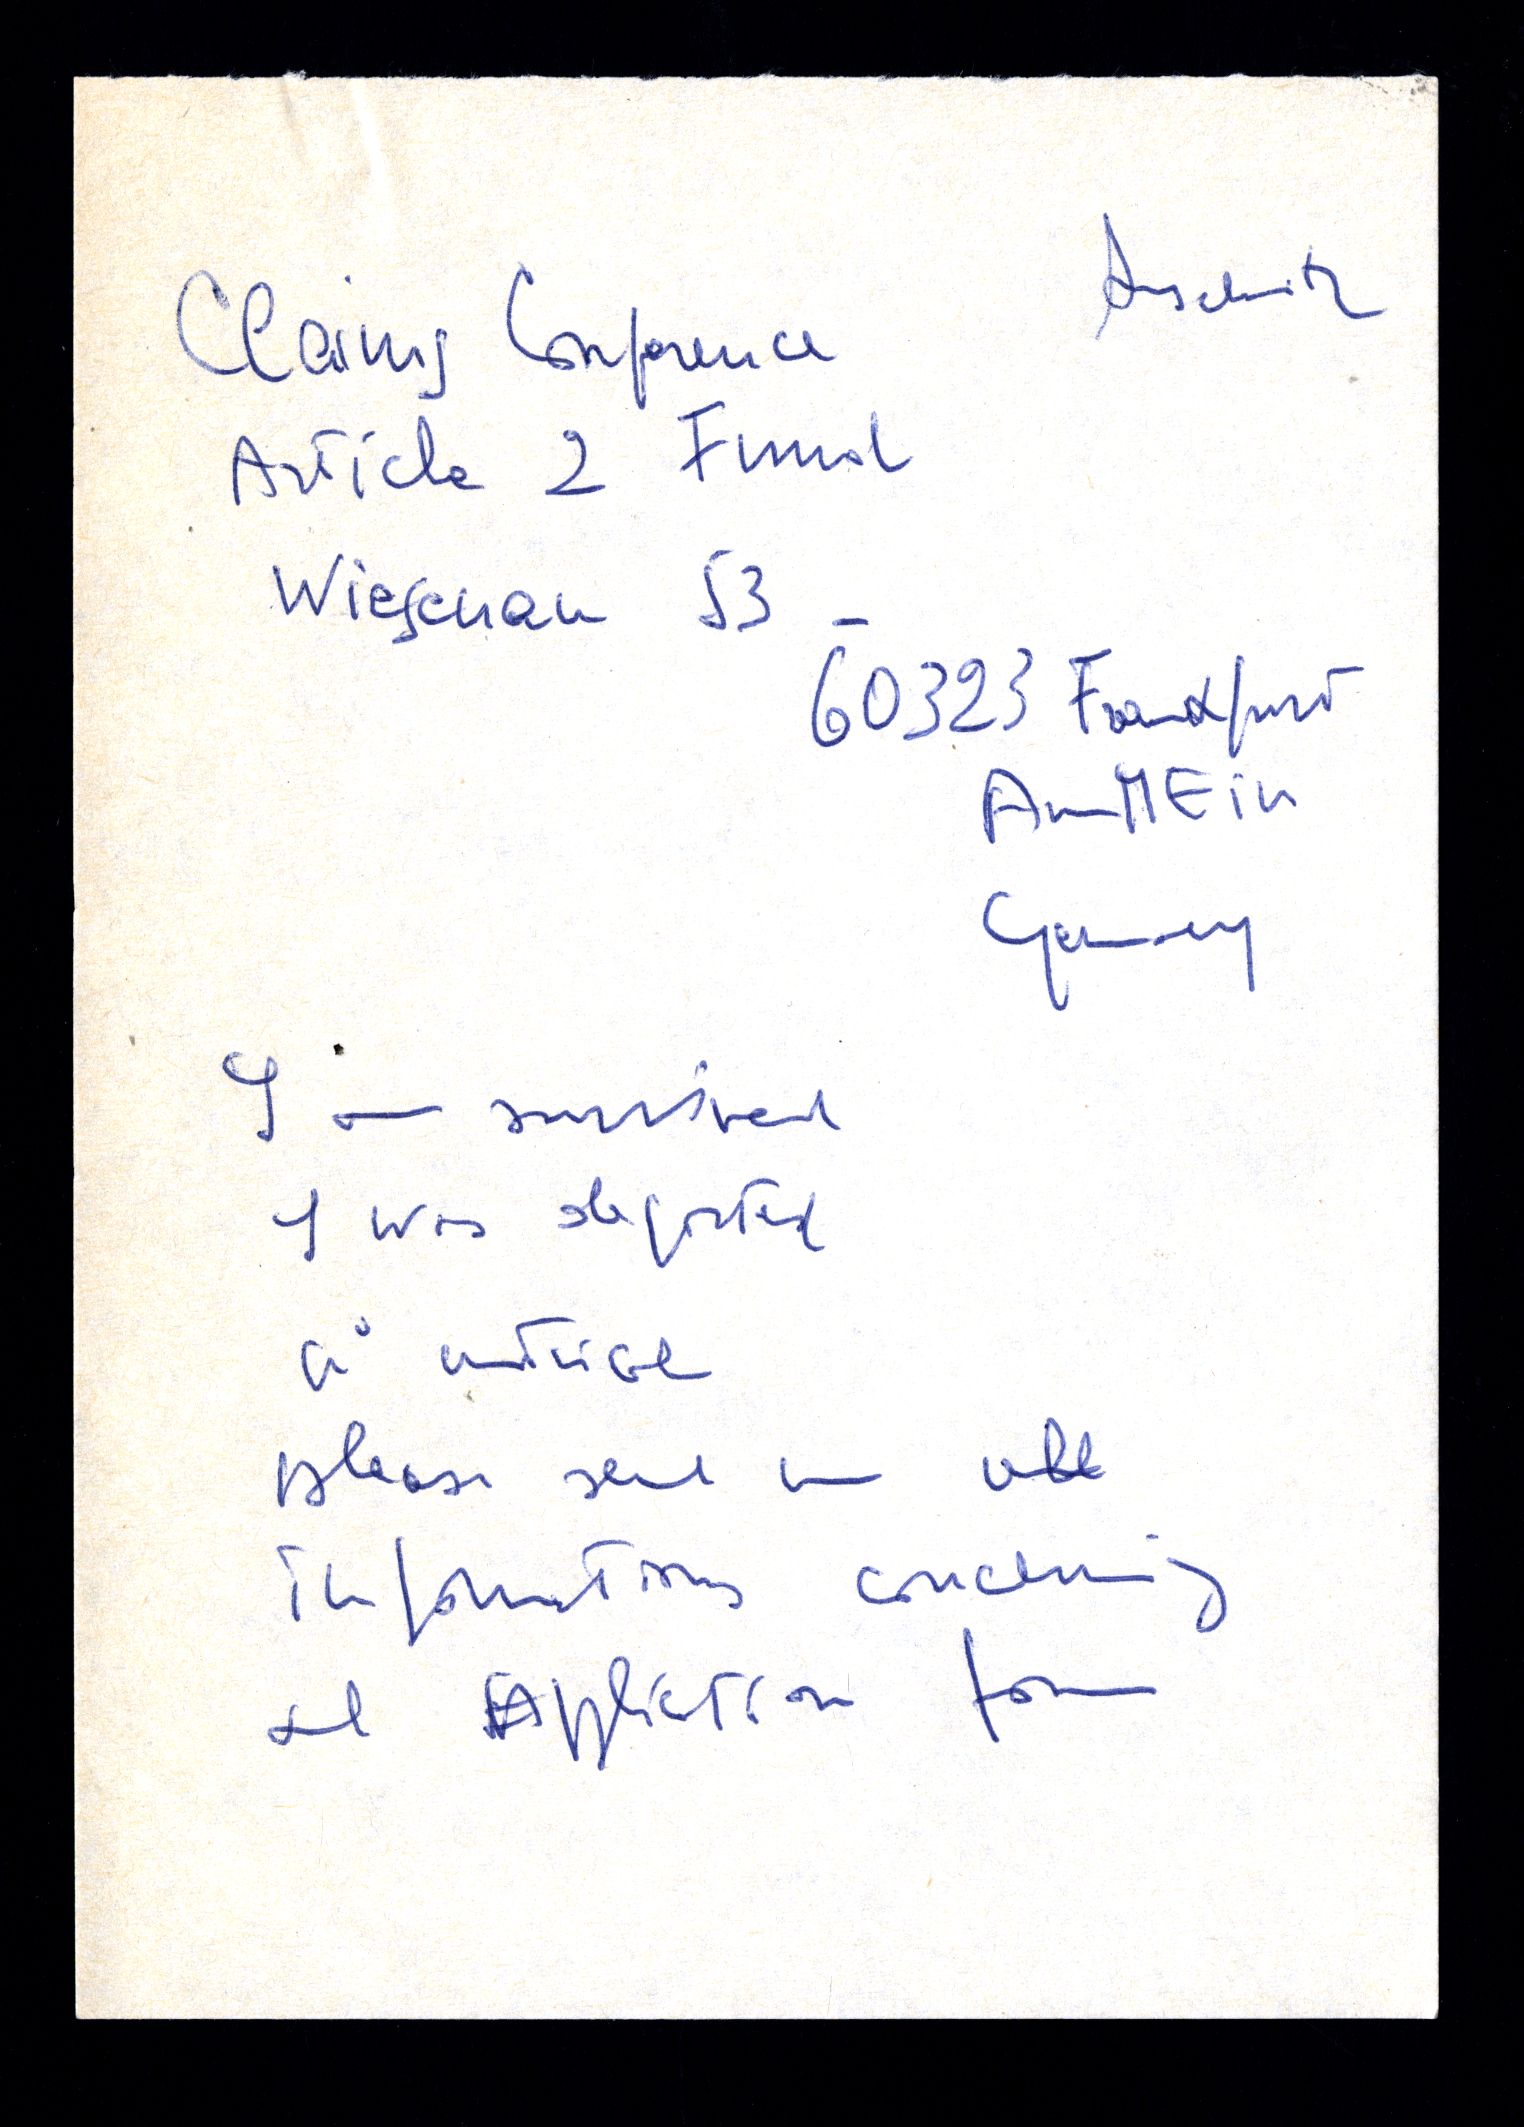 Auschwitz
Claims Conference
Article 2 Fund
Wiesenau 53 -
60323 Frankfurt
Am MEin
Germany
I am survived
I was deported
n° matricule
please send me all
informations concerning
and Application form